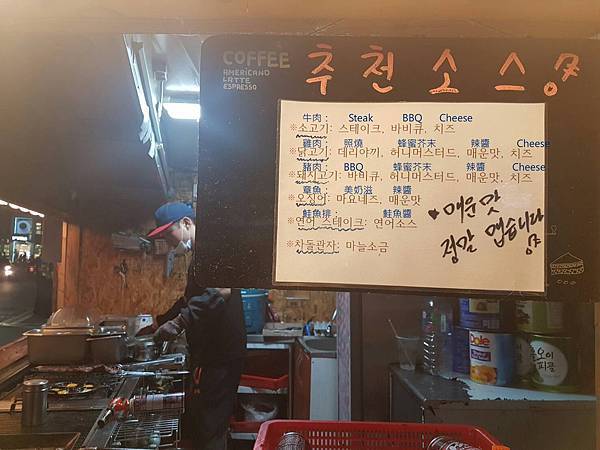 COFFEE
AMERICANO
LATTE
ESPRESSO
추천 소스
牛肉： Steak BBQ Cheese
※소고기: 스테이크, 바비큐, 치즈
雞肉： 照燒 蜂蜜芥末 辣醬 Cheese
※닭고기: 데리야끼, 허니머스터드, 매운맛, 치즈
豬肉： BBQ 蜂蜜芥末 辣醬 Cheese
※돼지고기: 바비큐, 허니머스터드, 매운맛, 치즈
章魚： 美奶滋 辣醬
※오징어: 마요네즈, 매운맛
鮭魚排： 鮭魚醬
※연어 스테이크: 연어소스
※차돌관자: 마늘소금
매운맛
정말 맵습니다
Dole